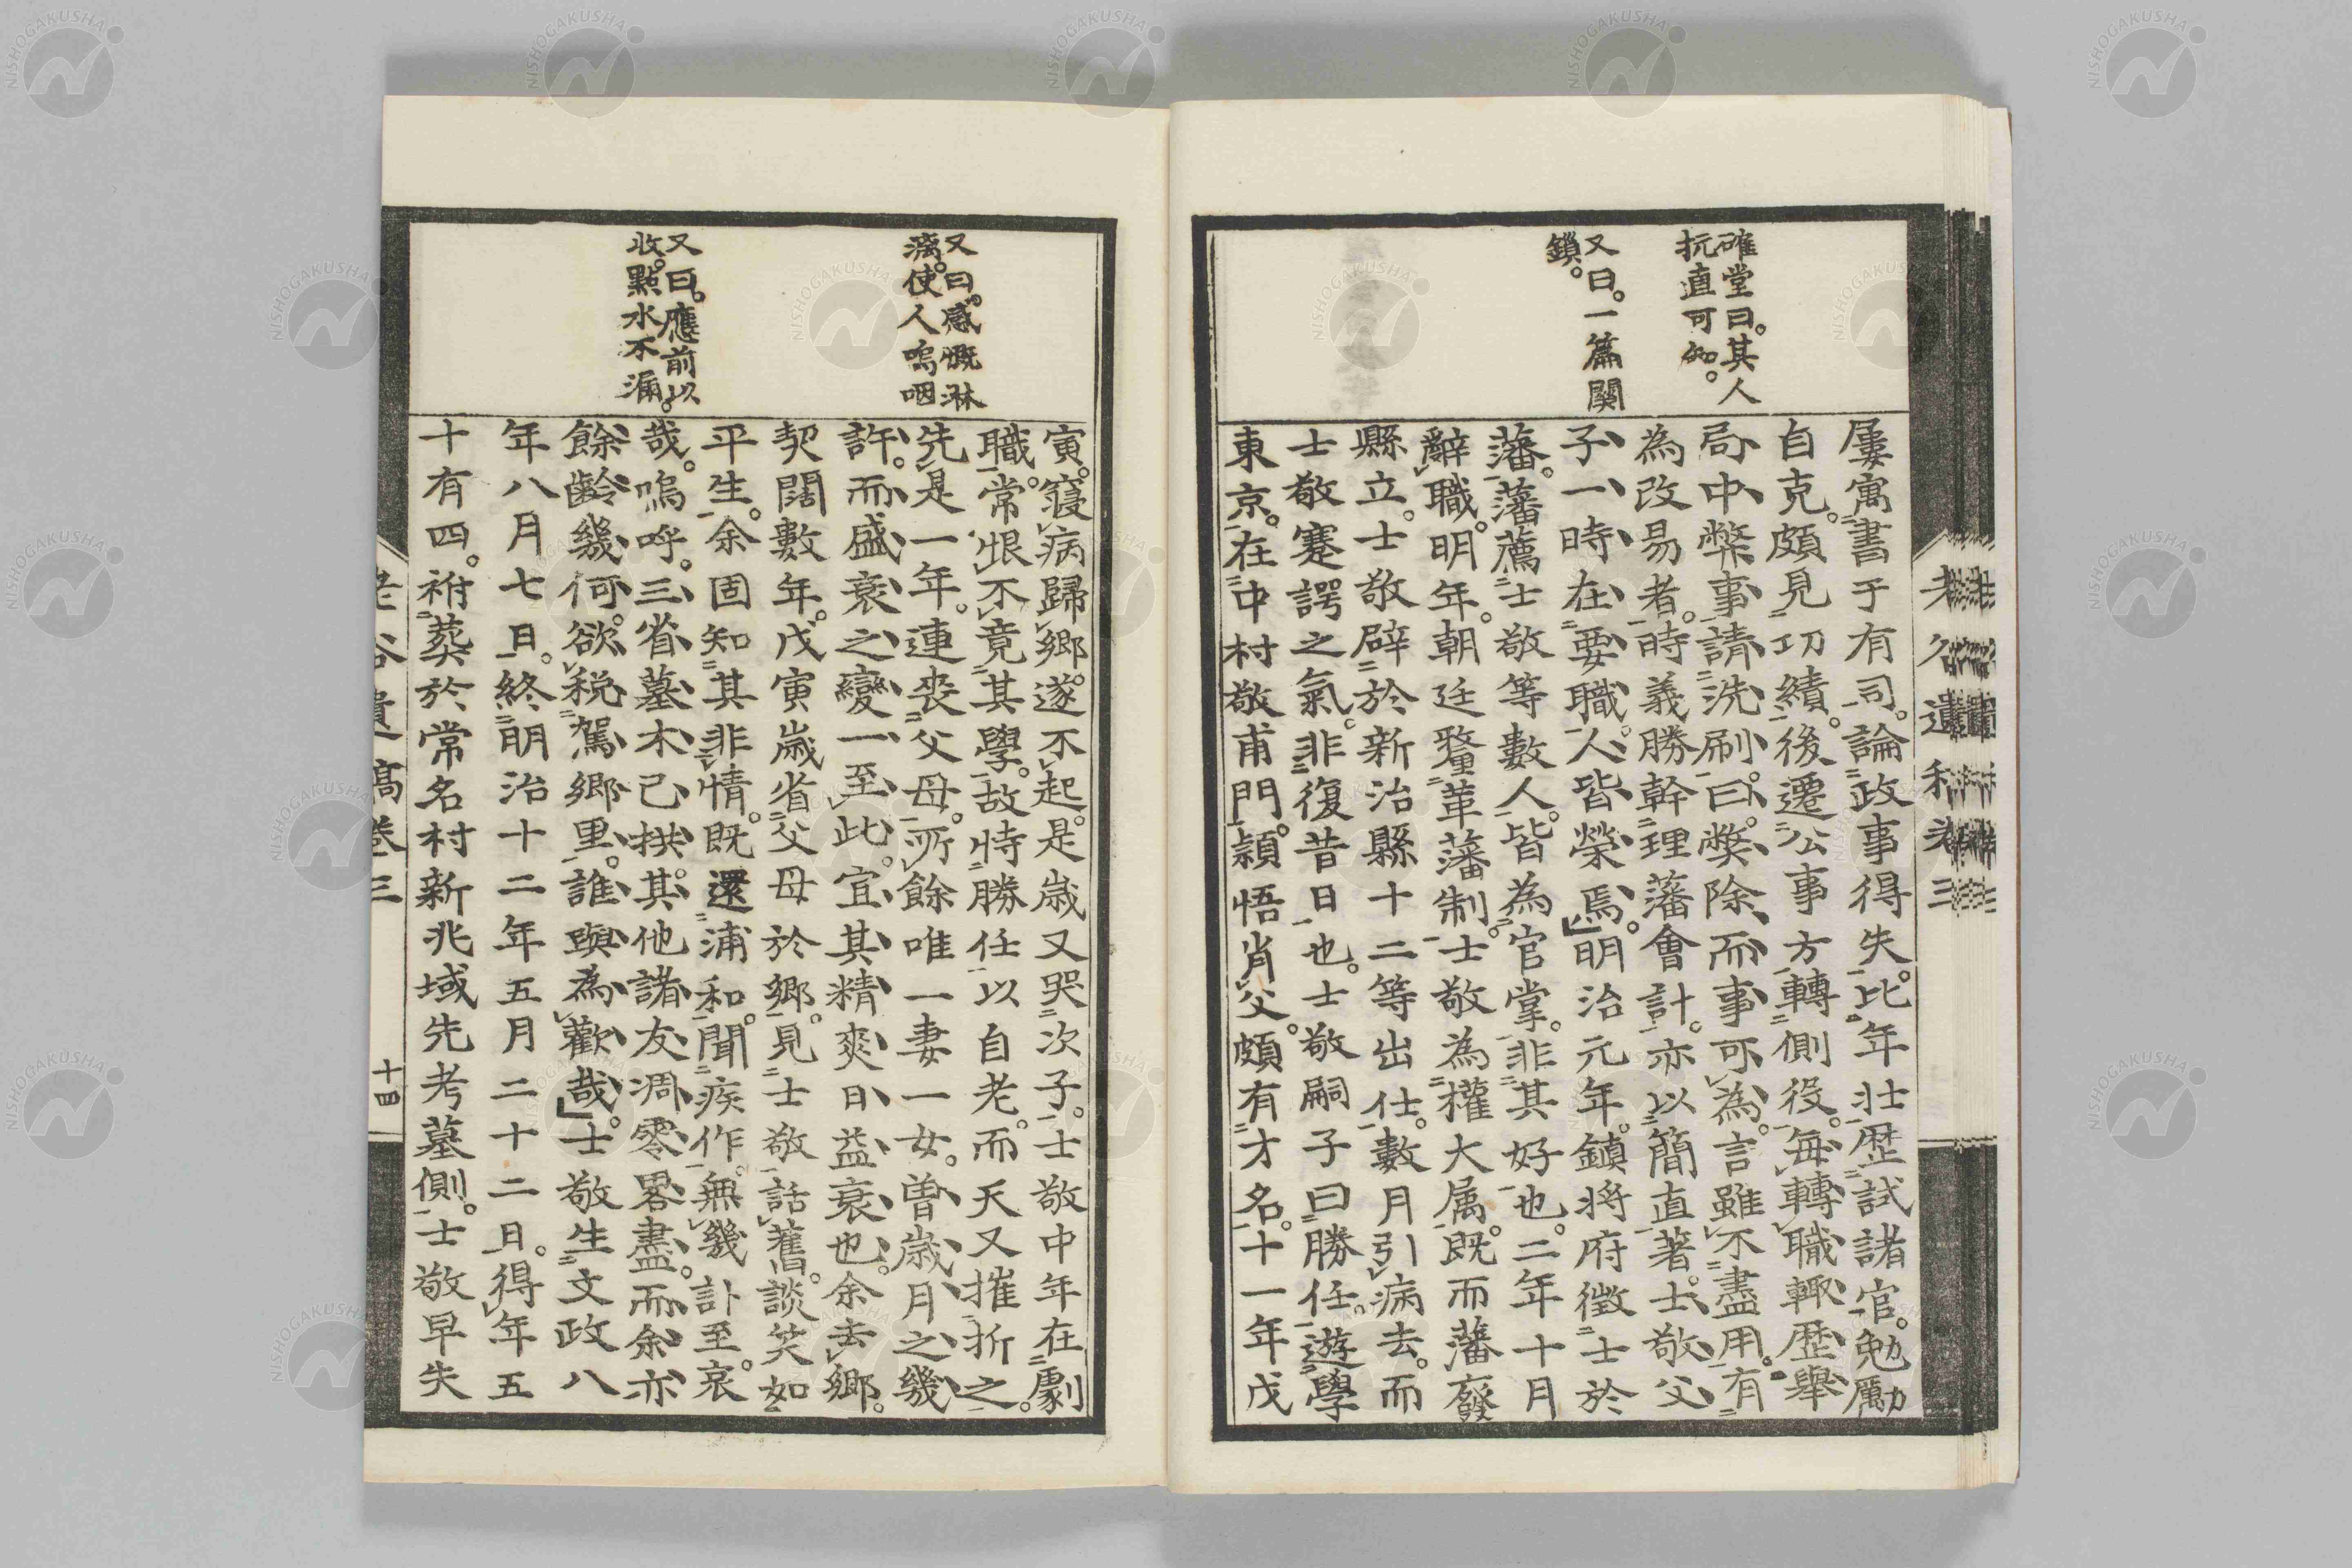 確堂曰。其人
抗直可知。
又曰。一篇關
鎖。
屢寓書于有司。論政事得失。比年壯歴試諸官。勉勵
自克。頗見功績。後遷公事方轉側役。毎轉職輙歴舉
局中弊事。請洗刷。曰。弊除而事可為。言雖不盡用。有
為改易者。時義勝幹理藩會計。亦以簡直著。士敬父
子一時在要職。人皆榮焉。」明治元年。鎮将府徴士於
藩。藩薦士敬等數人。皆為官掌。非其好也。二年十月
辭職。明年。朝廷釐革藩制。士敬為權大属。既而藩廢
縣立。士敬辟於新治縣十二等出仕。數月引病去。而
士敬蹇諤之氣。非復昔日也。士敬嗣子曰勝任。遊學
東京。在中村敬甫門。頴悟肖父。頗有才名。十一年戊
又曰。感慨淋
漓。使人嗚咽
又曰。應前以
收。點水不漏。
寅。寢病歸郷。遂不起。是歳又哭次子。士敬中年在劇
職。常恨不竟其學。故恃勝任以自老。而天又摧折之。
先是一年。連喪父母。所餘唯一妻一女。曽歳月之幾
許。而盛衰之變一至此。宜其精爽日益衰也。余去郷。
契闊數年。戊寅歳省父母於郷。見士敬。話舊。談笑如
平生。余固知其非情。既還浦和。聞疾作。無幾訃至。哀
哉。嗚呼。三省墓木已拱。其他諸友凋零畧盡。而余亦
餘齡幾何。欲税駕郷里。誰與為歡哉。」士敬生文政八
年八月七日。終明治十二年五月二十二日。得年五
十有四。祔葬於常名村新兆域先考墓側。士敬早失
遺稿卷三
十四